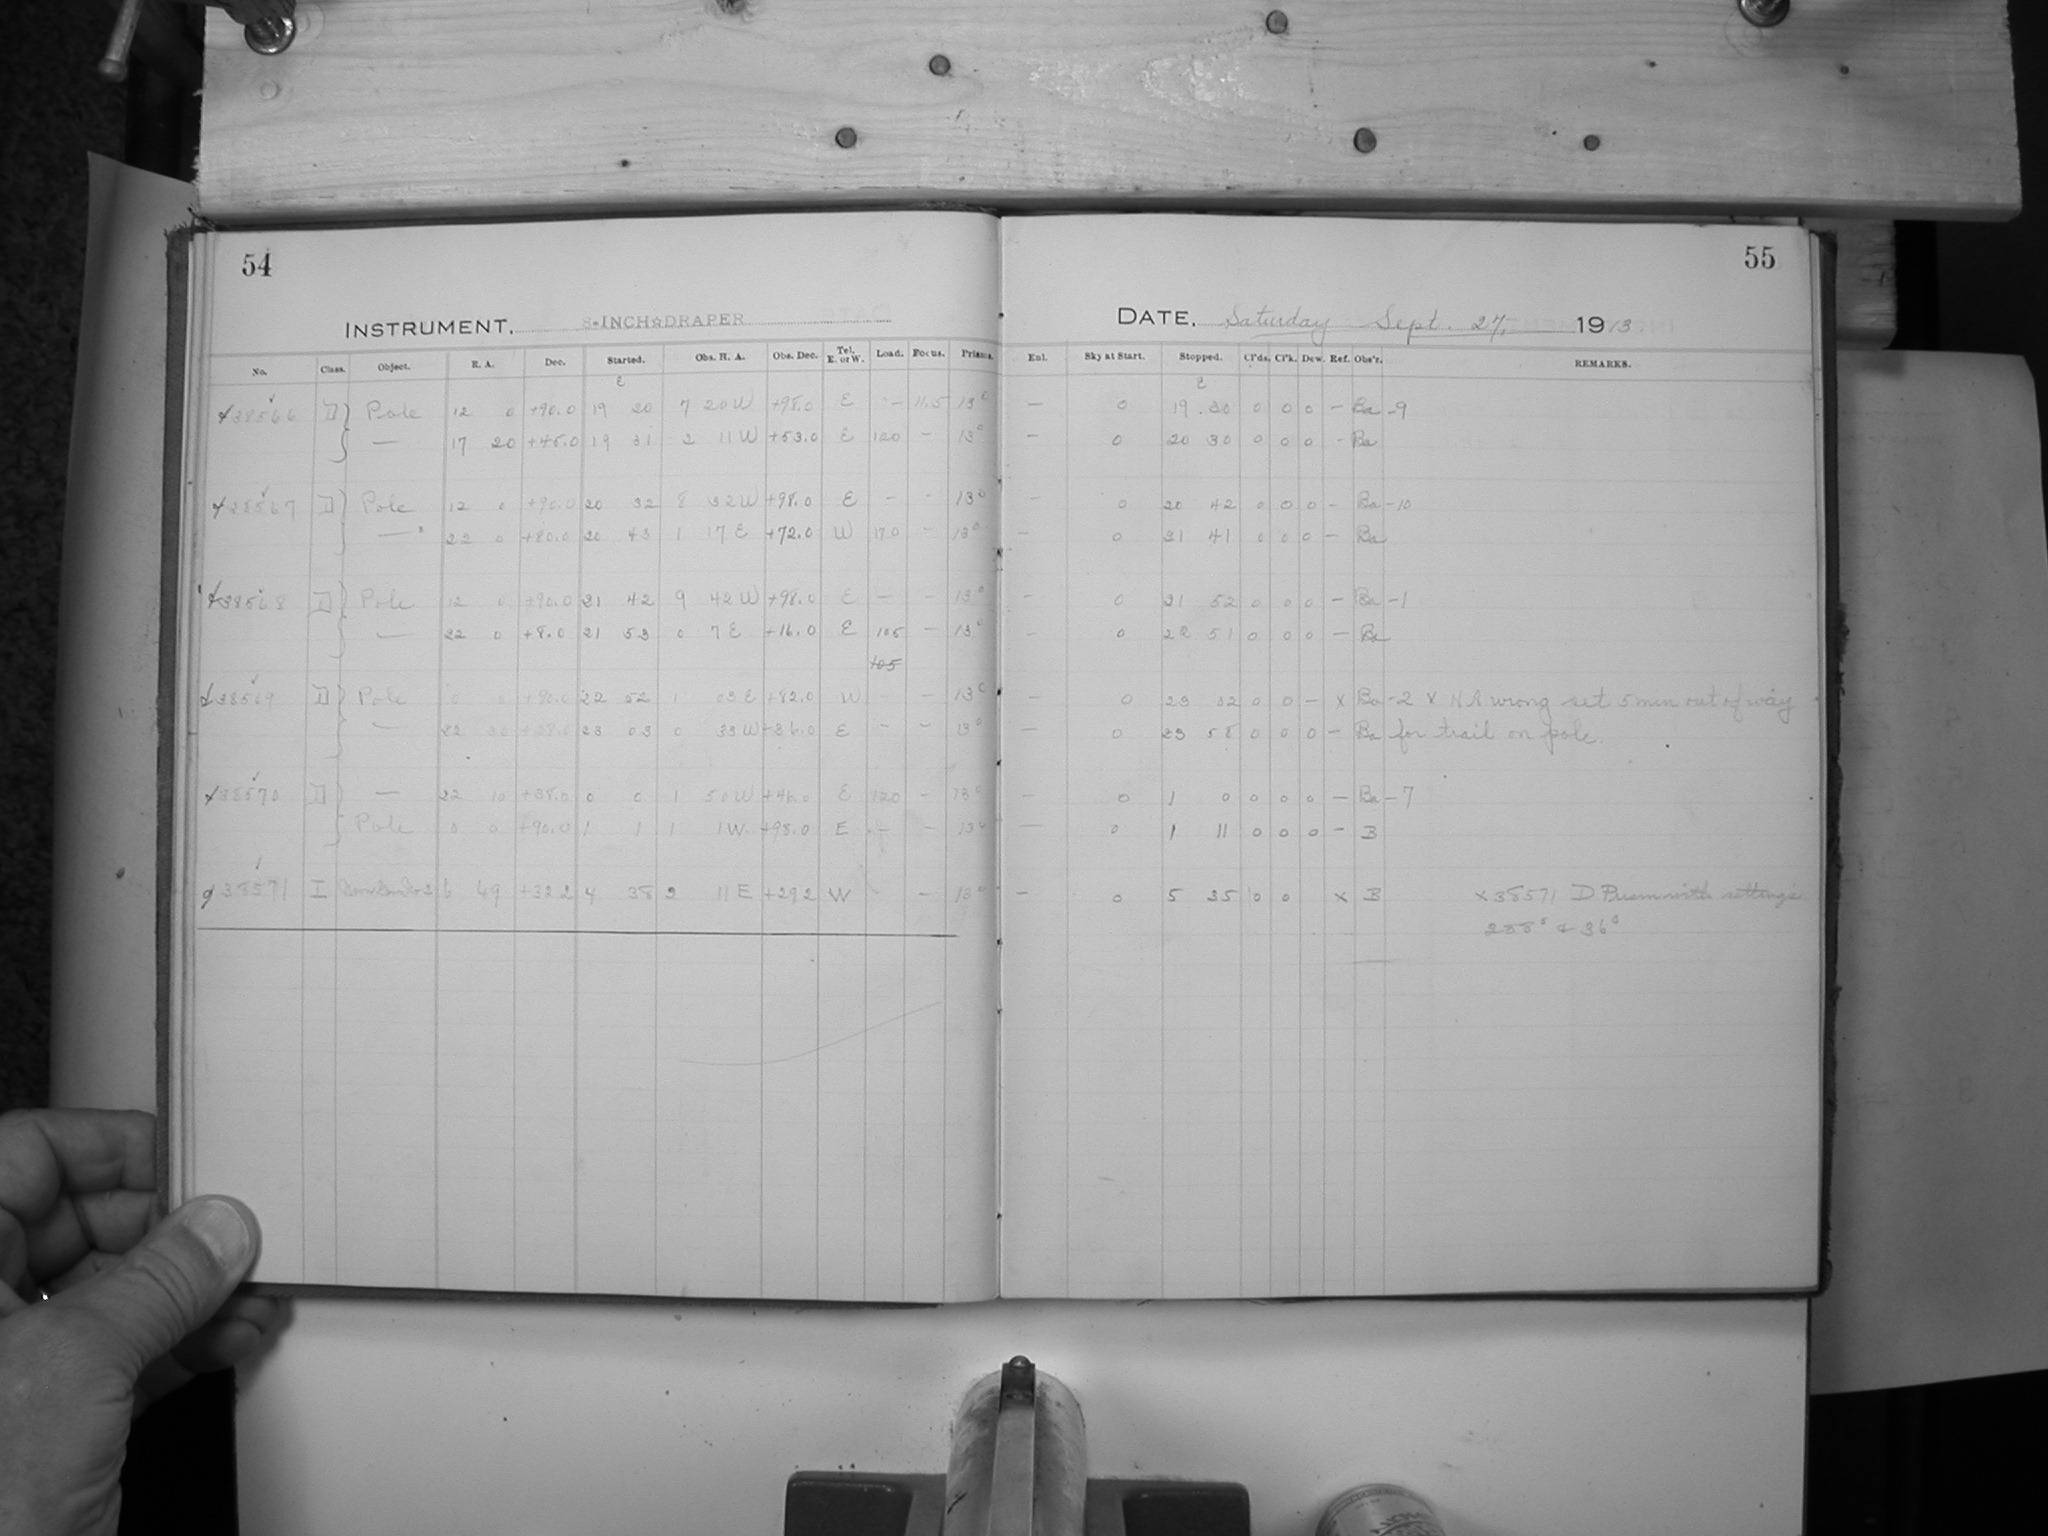 54
INSTRUMENT, 8-INCH☆DRAPER
No. Class. Object. R. A. Dec. Started. Obs. H. A. Obs. Dec. Tel. E. or W. Load. Focus. Prisms.
E
38566 D Pole 12 0 +90.0 19 20 7 20W +98.0 E - 11.5 13°
— 17 20 +45.0 19 31 2 11W +53.0 E 120 - 13°
38567 D Pole 12 0 +90.0 20 32 8 32W +98.0 E - - 13°
— 22 0 +80.0 20 43 1 17E +72.0 W 170 - 13°
38568 D Pole 12 0 +90.0 21 42 9 42W +98.0 E - - 13°
— 22 0 +8.0 21 53 0 7E +16.0 E 105 - 13°
105
38569 D Pole 0 0 +90.0 22 52 1 03E +82.0 W - - 13°
— 22 30 +28.0 23 03 0 33W +36.0 E - - 13°
38570 D — 22 10 +38.0 0 0 1 50W +46.0 E 120 - 13°
Pole 0 0 +90.0 1 1 1 1W +98.0 E - - 13°
38571 I 6 49 +32.2 4 38 2 11E +29.2 W - 13°
55
DATE, Saturday Sept. 27, 1913
Enl. Sky at Start. Stopped. Cl'ds. Cl'k. Dew. Ref. Obs'r. REMARKS.
E
- 0 19 30 0 0 0 - Ba -9
- 0 20 30 0 0 0 - Ba
- 0 20 42 0 0 0 - Ba -10
- 0 21 41 0 0 0 - Ba
- 0 21 52 0 0 0 - Ba -1
- 0 22 51 0 0 0 - Ba
- 0 23 02 0 0 - x Ba -2 x H A wrong set 5 min out of way
- 0 23 58 0 0 0 - Ba for trail on pole.
- 0 1 0 0 0 0 - Ba -7
- 0 1 11 0 0 0 - B
- 0 5 35 0 0 x B x 38571 D Prism with settings
288° & 36°